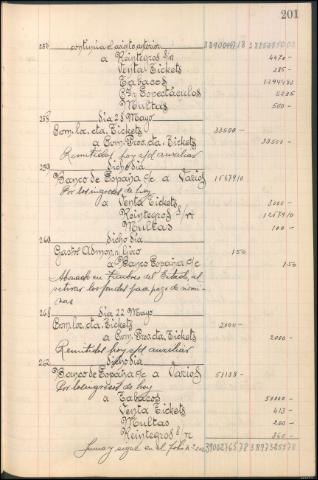 201
continúa el asiento anterior
a Reintegros s/r 4470-
Venta Tickets 285-
Tabacos
C/n Espectáculos
Multas 500-
258 dia 21 Mayo
Com. loc. cta. Tickets 33500-
a Com. Prov. cta. Tickets 33500-
Remitidos hoy s/d auxiliar
259 Dicho dia
Banco de España c/c a Varios
Por los ingresos de hoy
a Venta Tickets 3000-
Reintegros s/r
Multas 100-
260 Dicho dia
Gastos Admon. Giro 150
a Banco España c/c 150
Abonado en Timbres del Estado al
retirar los fondos para pago de nómi-
nas
261 dia 22 Mayo
Com. loc. cta. Tickets 2000-
a Com. Prov. cta. Tickets 2000-
Remitidos hoy s/d auxiliar
262 Dicho dia
Banco de España c/c a Varios 51188-
Por los ingresos de hoy
a Tabacos 50000-
Venta Tickets 413-
Multas
Reintegros s/r
Suma y sigue en el folio nº 202